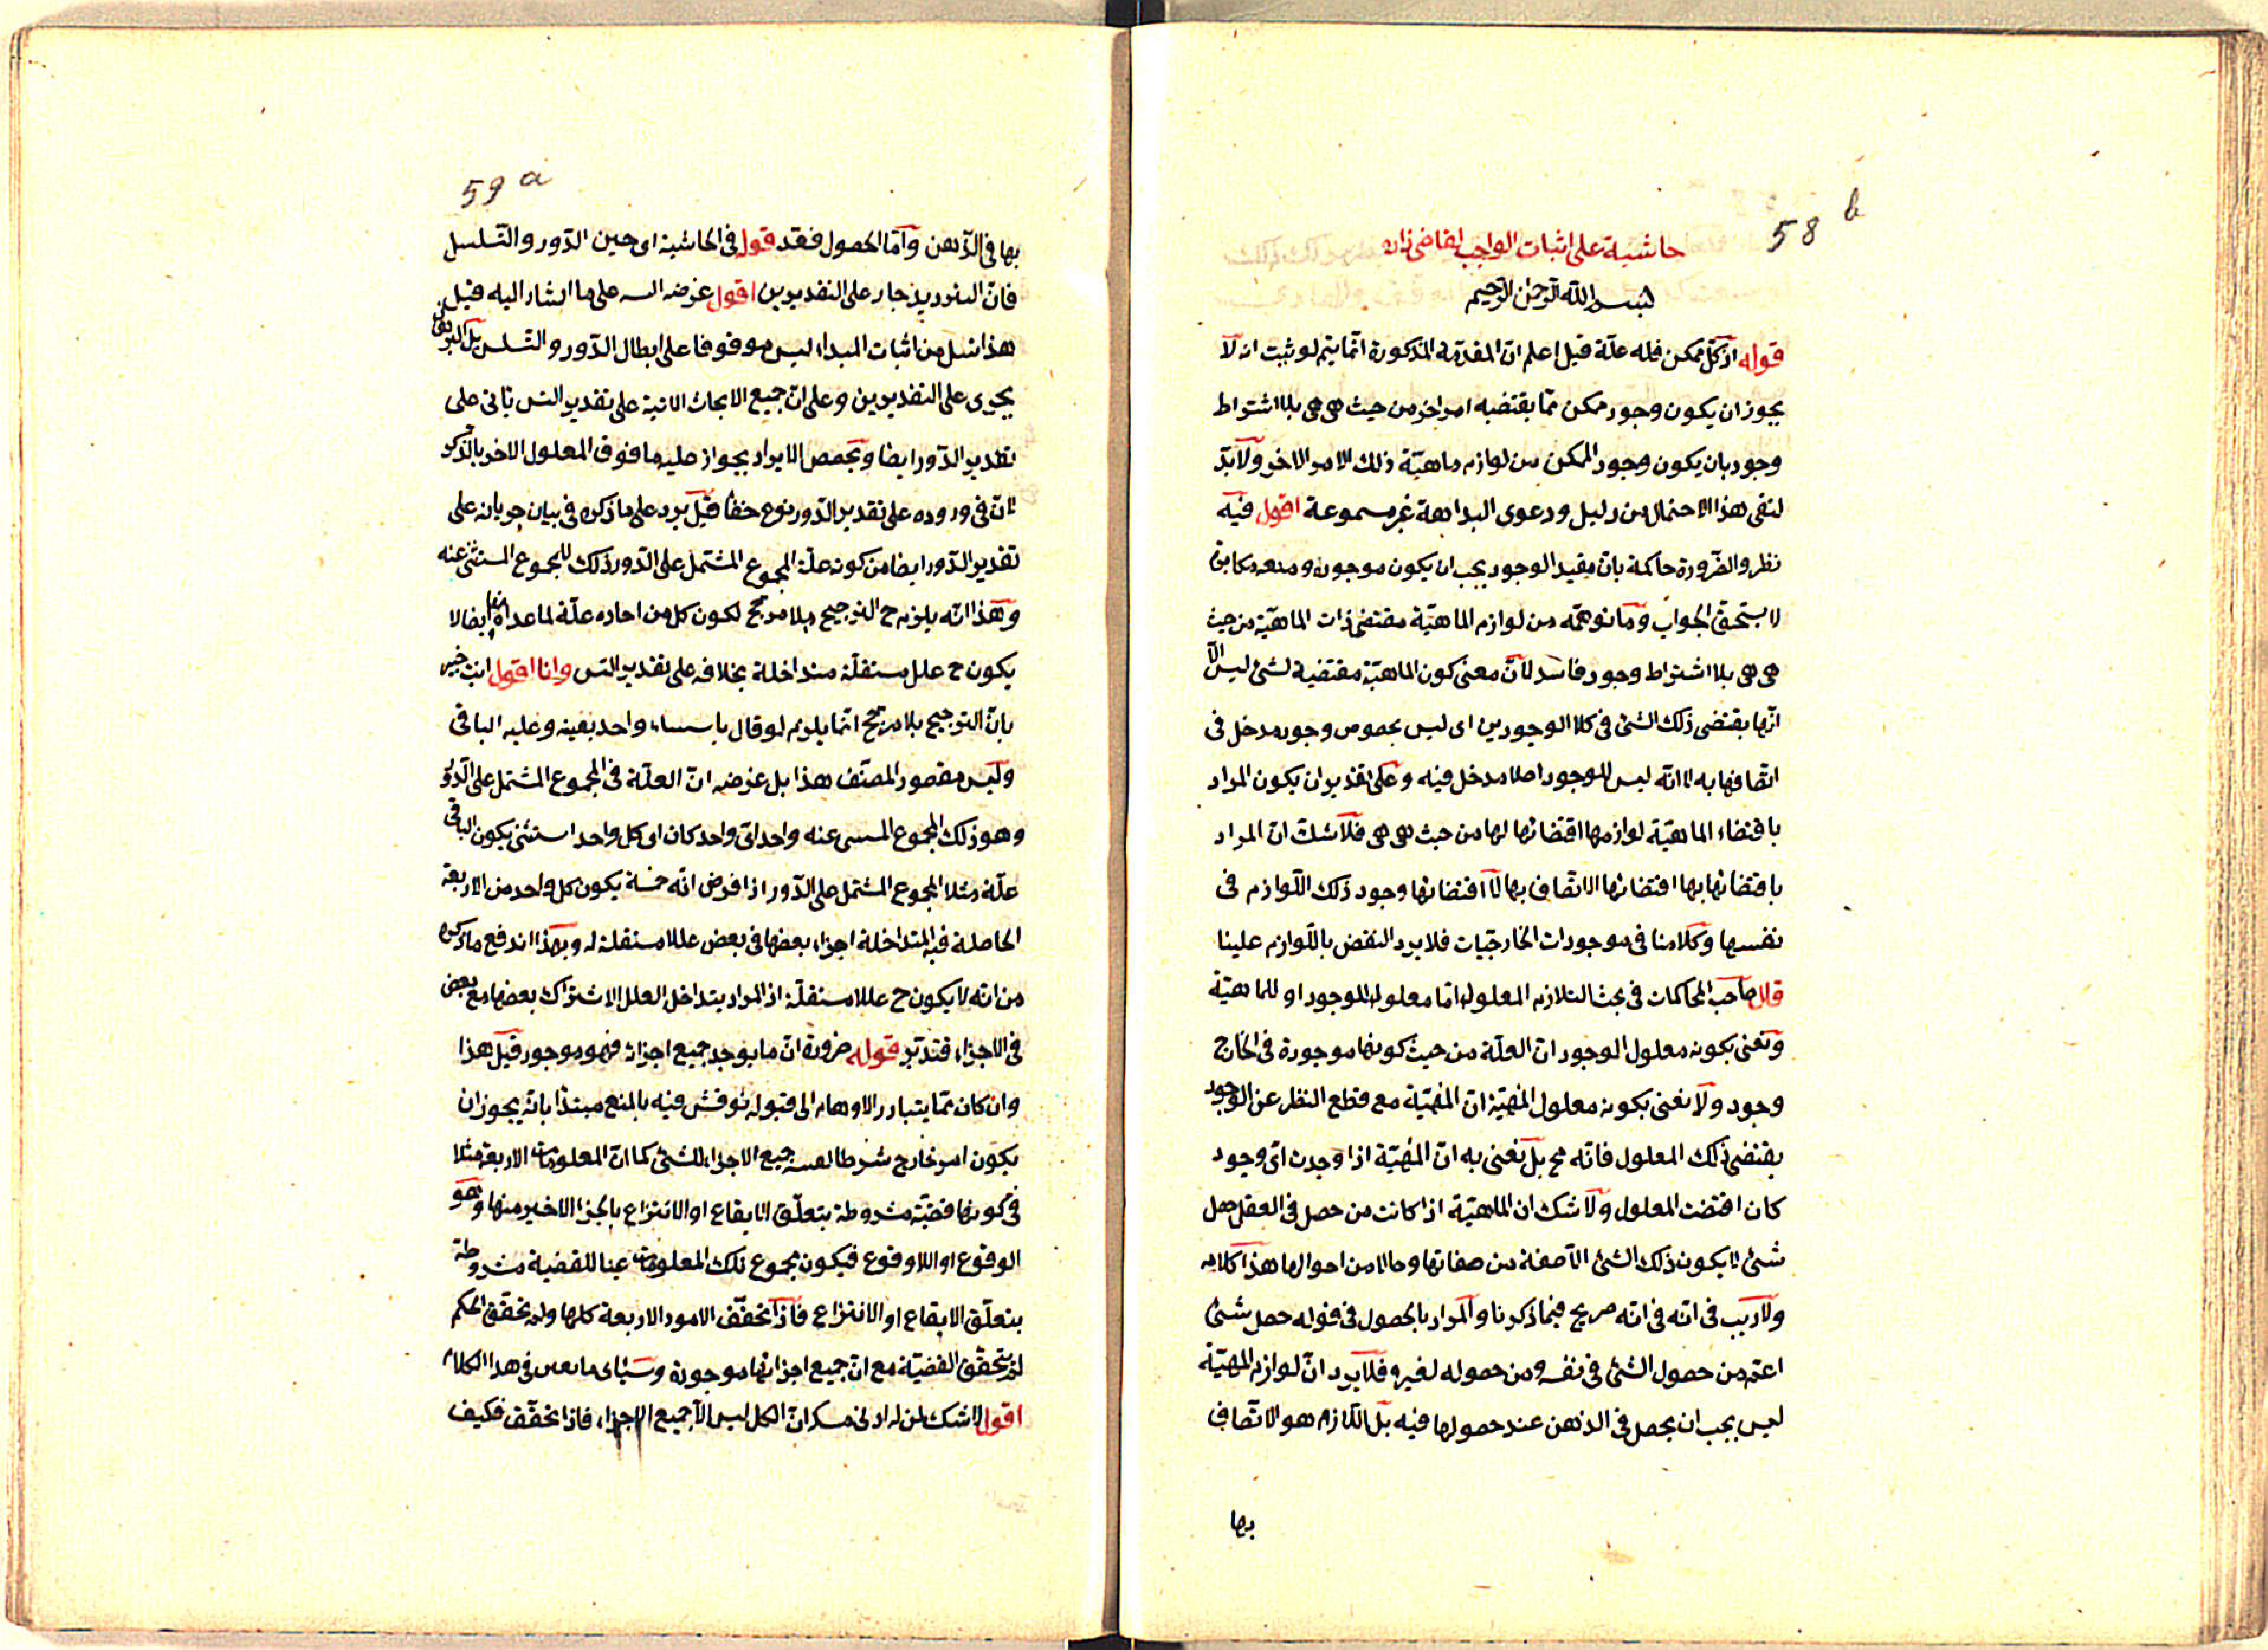 58 b
حاشية على اثبات الواجب لقاضى زاده
بسم الله الرحمن الرحيم
قوله اذ كل ممكن فله علّة قيل اعلم انّ المقدمة المذكورة انّما يتم لو ثبت انه لا
يجوز ان يكون وجود ممكن ممّا يقتضيه امر اخر من حيث هى هى بلا اشتراط
وجود بان يكون وجود الممكن من لوازم ماهيّة ذلك الامر الاخر ولا بدّ
لنفى هذا الاحتمال من دليل ودعوى البداهة غير مسموعة اقول فيه
نظر والضّرورة حاكمة بانّ مفيد الوجود يجب ان يكون موجودا ومنعه مكابرة
لا يستحق الجواب وما توهمّه من لوازم الماهيّة مقتضى ذات الماهيّة من حيث
هى هى بلا اشتراط وجود فاسد لانّ معنى كون الماهيّة مقتضية لشئ ليس الّا
انّها يقتضى ذلك الشئ فى كلا الوجودين اى ليس بخصوص وجود مدخل فى
اتّصافها به لا انّه ليس للوجود اصلا مدخل فيه وعلى تقدير ان يكون المراد
باقتضاء الماهيّة لوازمها اقتضائها لها من حيث هى هى فلا شكّ انّ المراد
باقتضائها بها اقتضائها الاتّصاف بها لا اقتضائها وجود ذلك اللّوازم فى
نفسها وكلامنا فى موجودات الخارجيّات فلا يرد النقض باللّوازم علينا
قال صاحب المحاكمات فى بحث التلازم المعلول امّا معلول للوجود او للماهيّة
ونعنى بكونه معلول الوجود انّ العلّة من حيث كونها موجودة فى الخارج
وجود ولا نعنى بكونه معلول المهيّة انّ المهيّة مع قطع النظر عن الوجود
يقتضى ذلك المعلول فانّه مح بل نعنى به انّ المهيّة اذا وجدت اىّ وجود
كان اقتضت المعلول ولا شك ان الماهيّة اذا كانت من حصل فى العقل حصل
شئ لا يكون ذلك الشئ الّا صفة من صفاتها وحالا من احوالها هذا كلامه
ولا ريب فى انّه فى انّه صريح فيما ذكرنا والمراد بالحصول فى قوله حصل شئ
اعمّ من حصول الشئ فى نفسه ومن حصوله لغيره فلا يرد انّ لوازم المهيّة
ليس يجب ان يحصل فى الذهن عند حصولها فيه بل اللّازم هو الاتّصاف
بها
59 a
بها فى الذّهن وامّا الحصول فقد قوله فى الحاشية اى حين الدّور والتّسلسل
فانّ الترديد جار على التقديرين اقول غرضه على ما اشار اليه قيل
هذا من اثبات المبداء ليس موقوفا على ابطال الدّور والتّسلسل بل
يجرى على التقديرين وعلى انّ جميع الابحاث الاتية على تقدير التس يأتى على
تقدير الدّور ايضا وتخصص الايراد بجواز عليه ما فوق المعلول الاخر بالذّكر
لانّ فى وروده على تقدير الدّور نوع خفأ قيل يرد على ما ذكره فى بيان جريانه على
تقدير الدّور ايضا من كونه علّة المجموع المشتمل على الدّور ذلك المجموع المستثنى عنه
وهذا انّه يلزم ح الترجيح بلا مرجح لكون كل من احاده علّة لما عداه ايضا لا
يكون ح علل مستقلّة متداخلة بخلافه على تقدير التس وانا اقول انت خبير
بانّ الترجيح بلا مرجح انّما يلزم لو قال واحد بعينه وعليه الباقى
وليس مقصود المصنّف هذا بل غرضه انّ العلّة فى المجموع المشتمل على الدّور
وهو ذلك المجموع عنه واحد اىّ واحد كان اى كل واحد استثنى يكون الباقى
علّة مثلا المجموع المشتمل على الدّور اذا فرض انّه خمسة يكون كل واحد من الاربعة
الحاصلة فيه المتداخلة اجزاء بعضها فى بعض عللا مستقلة له وبهذا اندفع ما ذكره
من انّه لا يكون ح عللا مستقلّة اذ المراد بتداخل العلل الاشتراك بعضها مع بعض
فى الاجزاء فتدبّر قوله ضرورة انّ ما يوجد جميع اجزائه فهو موجود قيل هذا
وان كان ممّا يتبادر الاوهام الى قبوله نوقش فيه بالمنع مبتدأ بانّه يجوز ان
يكون امر خارج شرطا جميع الاجزاء للشئ كما انّ المعلومات الاربعة مثلا
فى كونها قضيّة مشروطة بتعلّق الايقاع او الانتزاع بالجزء الاخير منها وهو
الوقوع او اللاوقوع فيكون مجموع تلك المعلومات عينا للقضية مشروطة
بتعلّق الايقاع او الانتزاع فاذا تحقّق الامور الاربعة كلها ولم تحقق الحكم
لم يتحقّق القضيّة مع انّ جميع اجزائها موجودة وسيأتى ما فى هذا الكلام
اقول لا شك لمن له ادنى انّ الكل ليس الّا جميع الاجزاء فاذا تحقّق فكيف